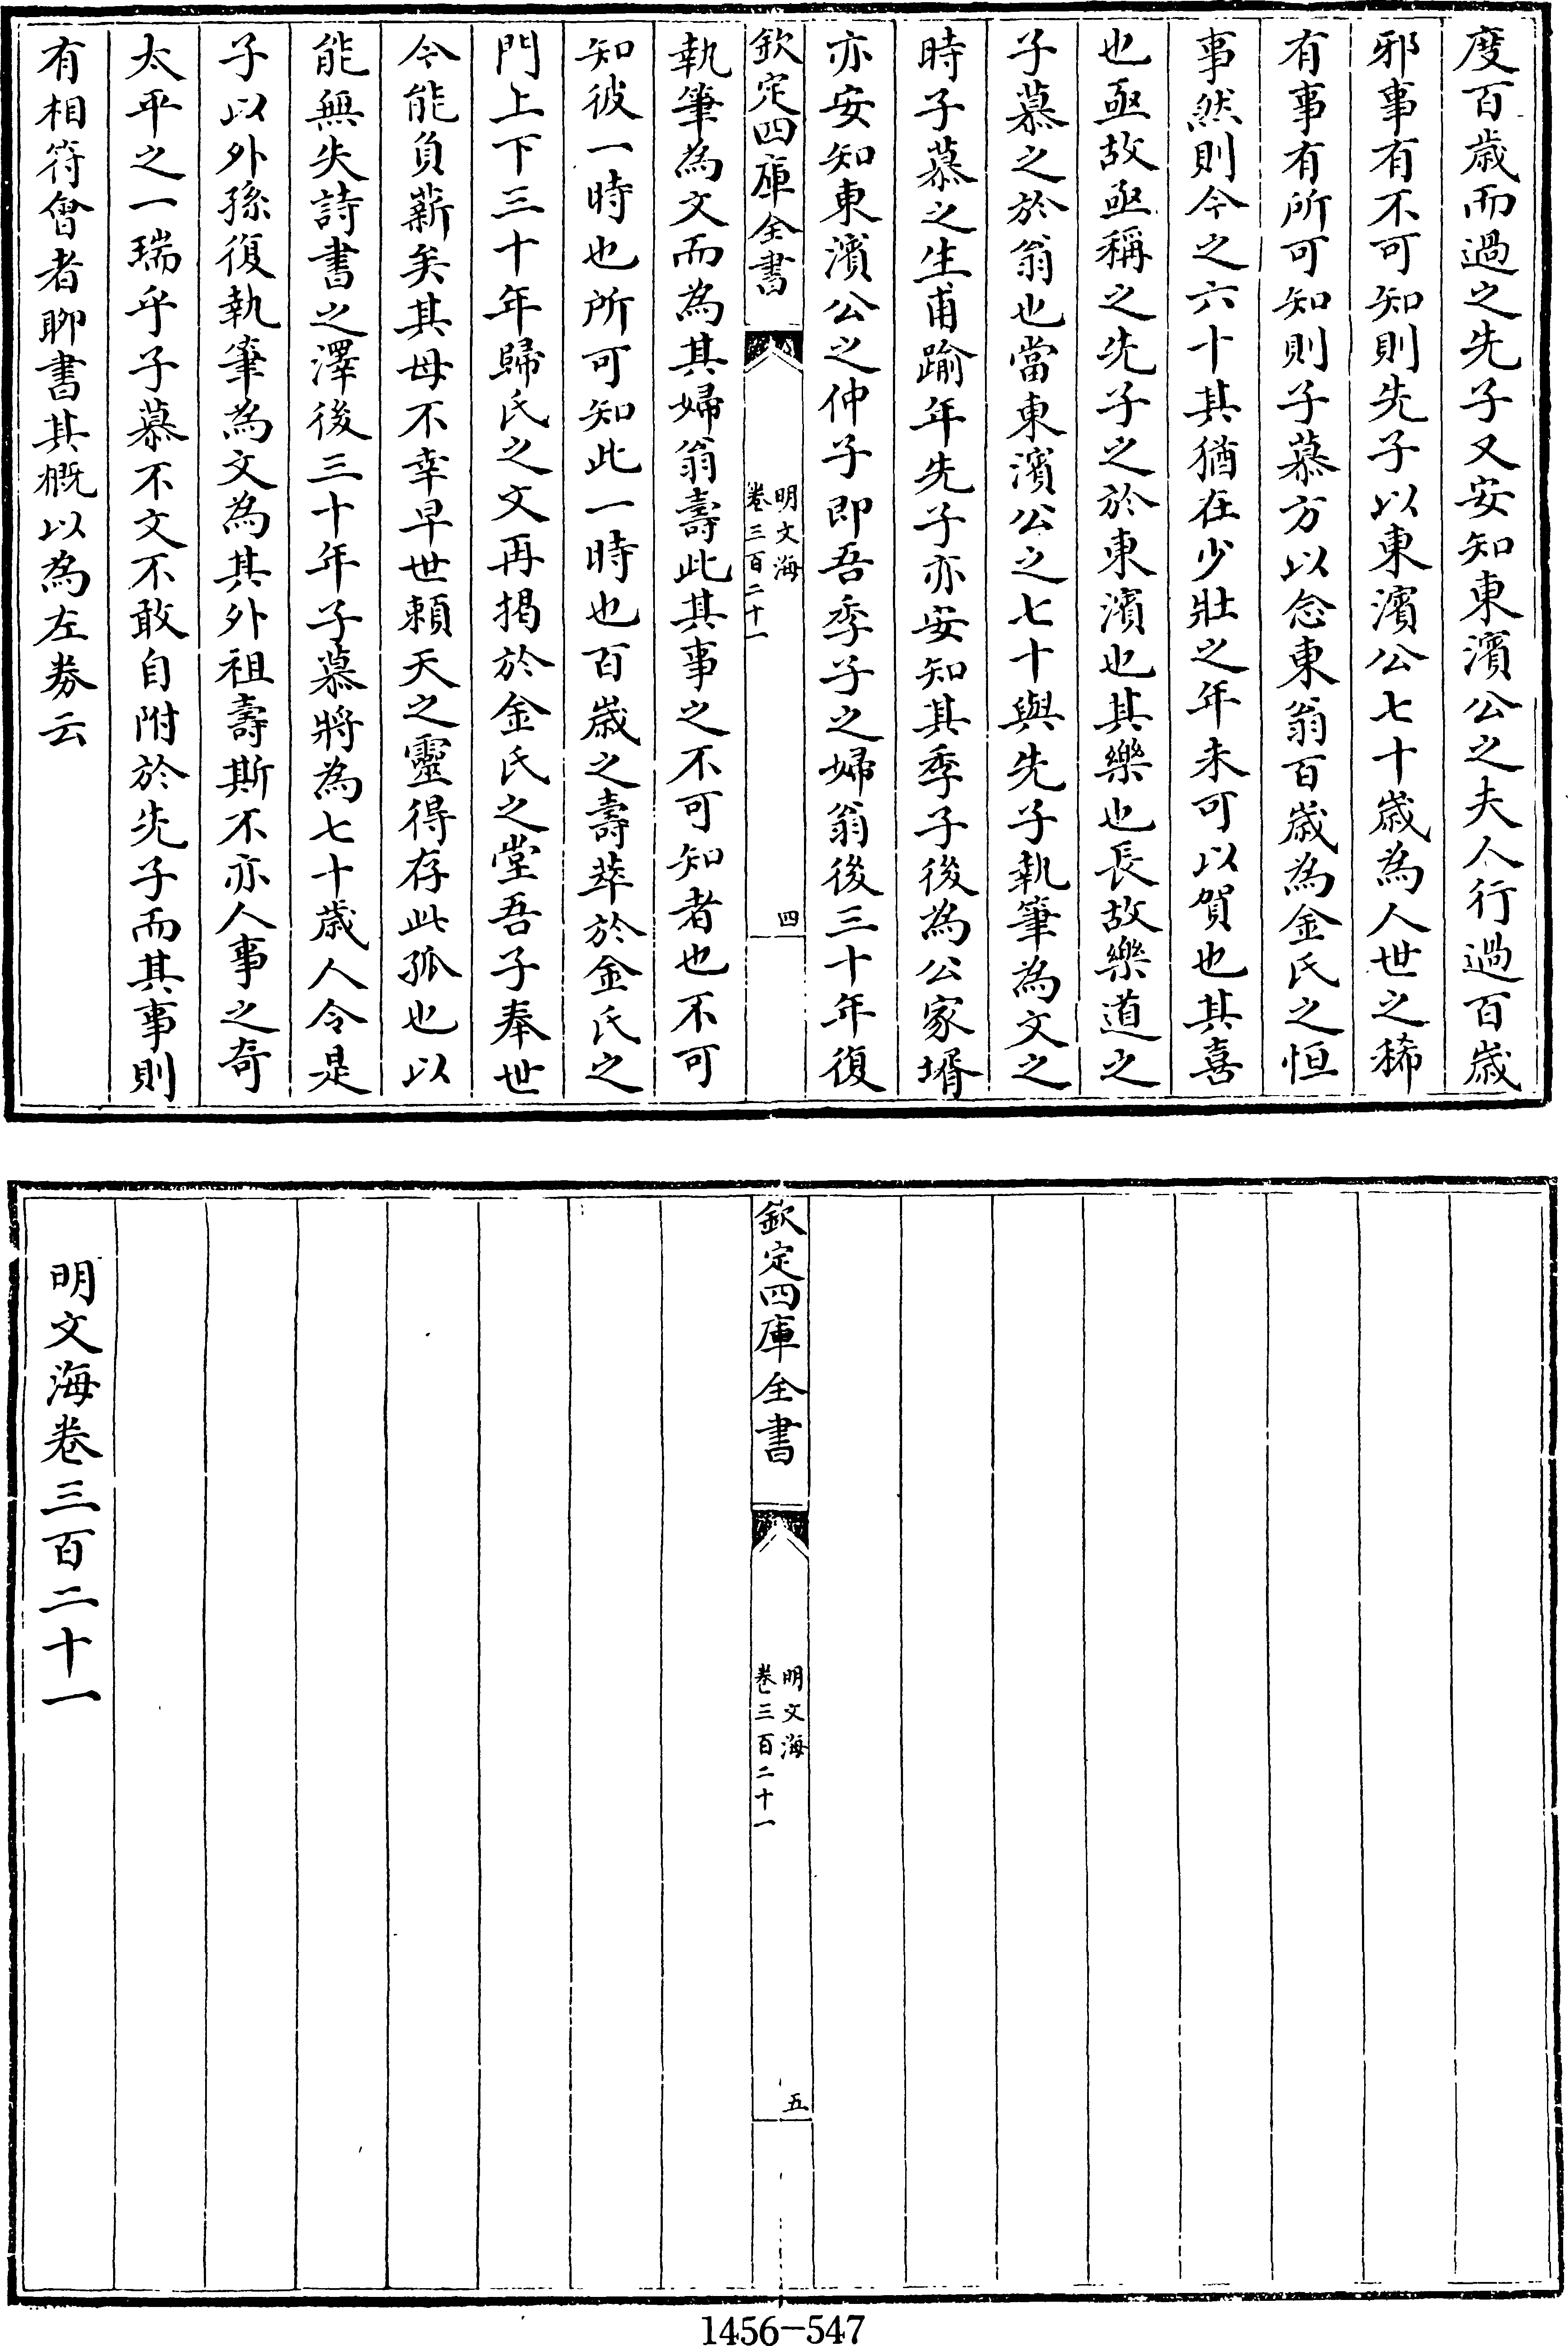 度百歲而過之先子又安知東濱公之夫人行過百歲
邪事有不可知則先子以東濱公七十歲為人世之稀
有事有所可知則子慕方以念東翁百歲為金氏之恒
事然則今之六十其猶在少壯之年未可以賀也其喜
也亟故亟稱之先子之於東濱也其樂也長故樂道之
子慕之於翁也當東濱公之七十與先子執筆為文之
時子慕之生甫踰年先子亦安知其季子後為公家壻
亦安知東濱公之仲子即吾季子之婦翁後三十年復
欽定四庫全書
明文海
卷三百二十一
四
執筆為文而為其婦翁壽此其事之不可知者也不可
知彼一時也所可知此一時也百歲之壽萃於金氏之
門上下三十年歸氏之文再揭於金氏之堂吾子奉世
今能負薪矣其母不幸早世賴天之靈得存此孤也以
能無失詩書之澤後三十年子慕將為七十歲人令是
子以外孫復執筆為文為其外祖壽斯不亦人事之奇
太平之一瑞乎子慕不文不敢自附於先子而其事則
有相符會者聊書其概以為左券云
欽定四庫全書
明文海
卷三百二十一
五
明文海卷三百二十一
1456-547